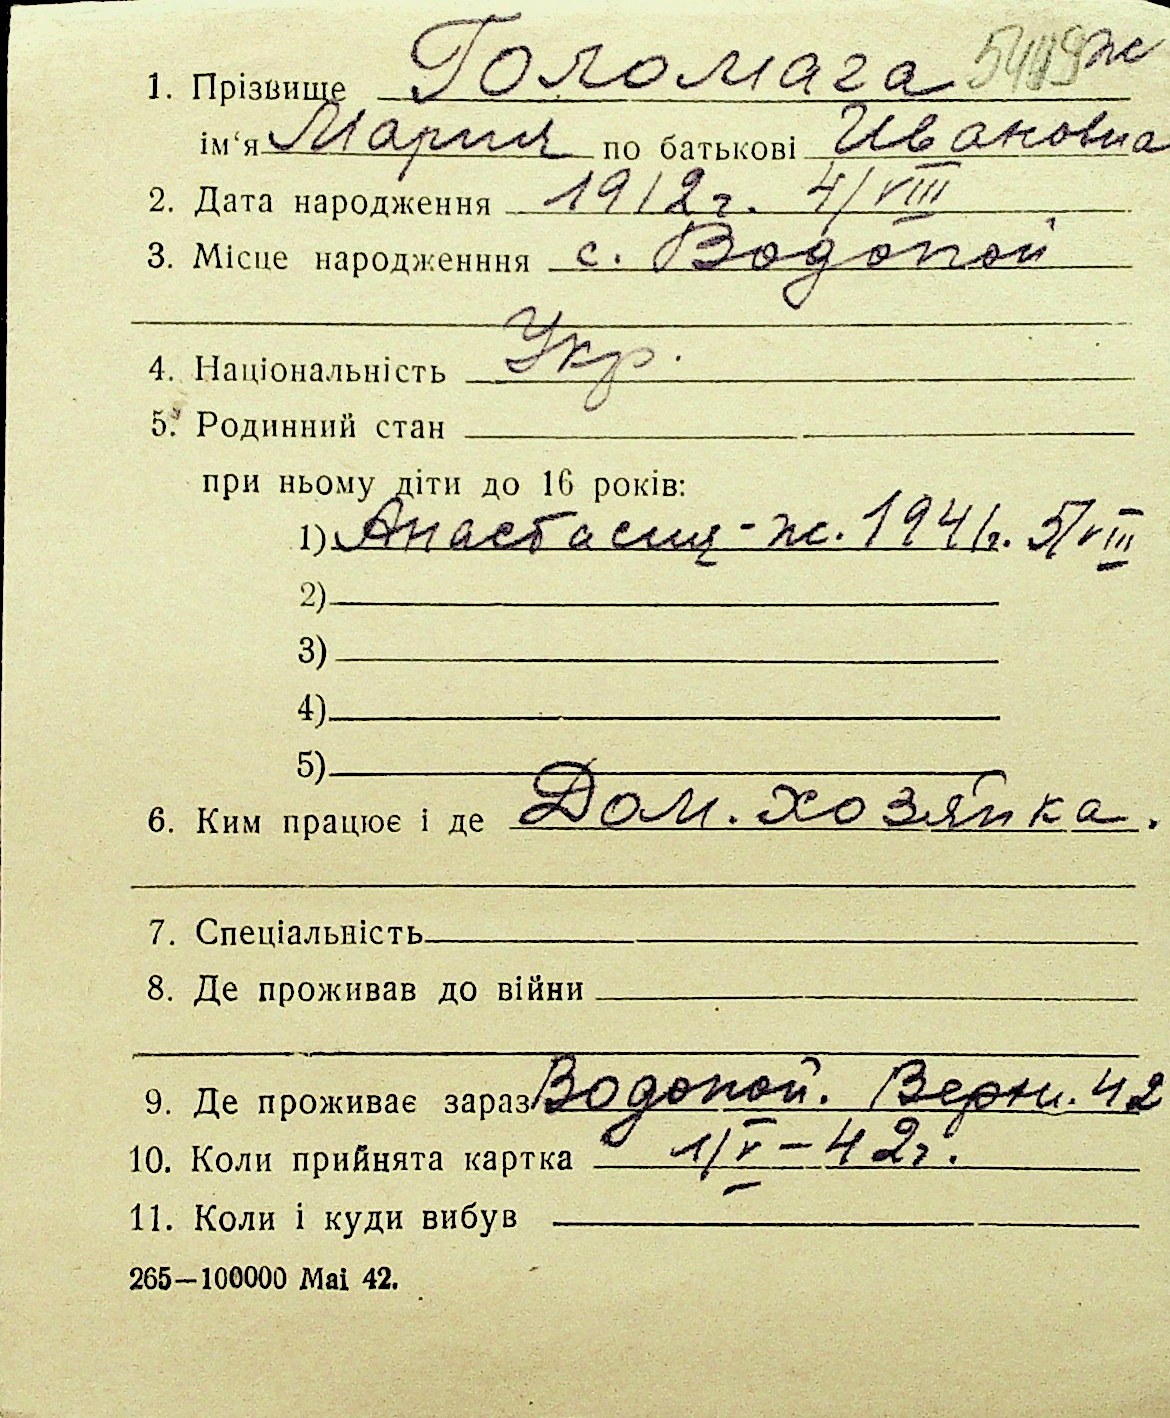 1. Прізвище Голомага ж
ім‘я Мария по батькові Ивановна
2. Дата народження 1912г. 4/VIII
3. Місце народженння с. Водопой
4. Національність Укр.
5. Родинний стан
при ньому діти до 16 років:
1) Анастасия - ж. 1941г. 5/VIII
2)
3)
4)
5)
6. Ким працює і де Дом. хозяйка.
7. Спеціальність
8. Де проживав до війни
9. Де проживає зараз Водопой. Верхн. 42
10. Коли прийнята картка 1/V – 42г.
11. Коли і куди вибув
265—100000 Mai 42.